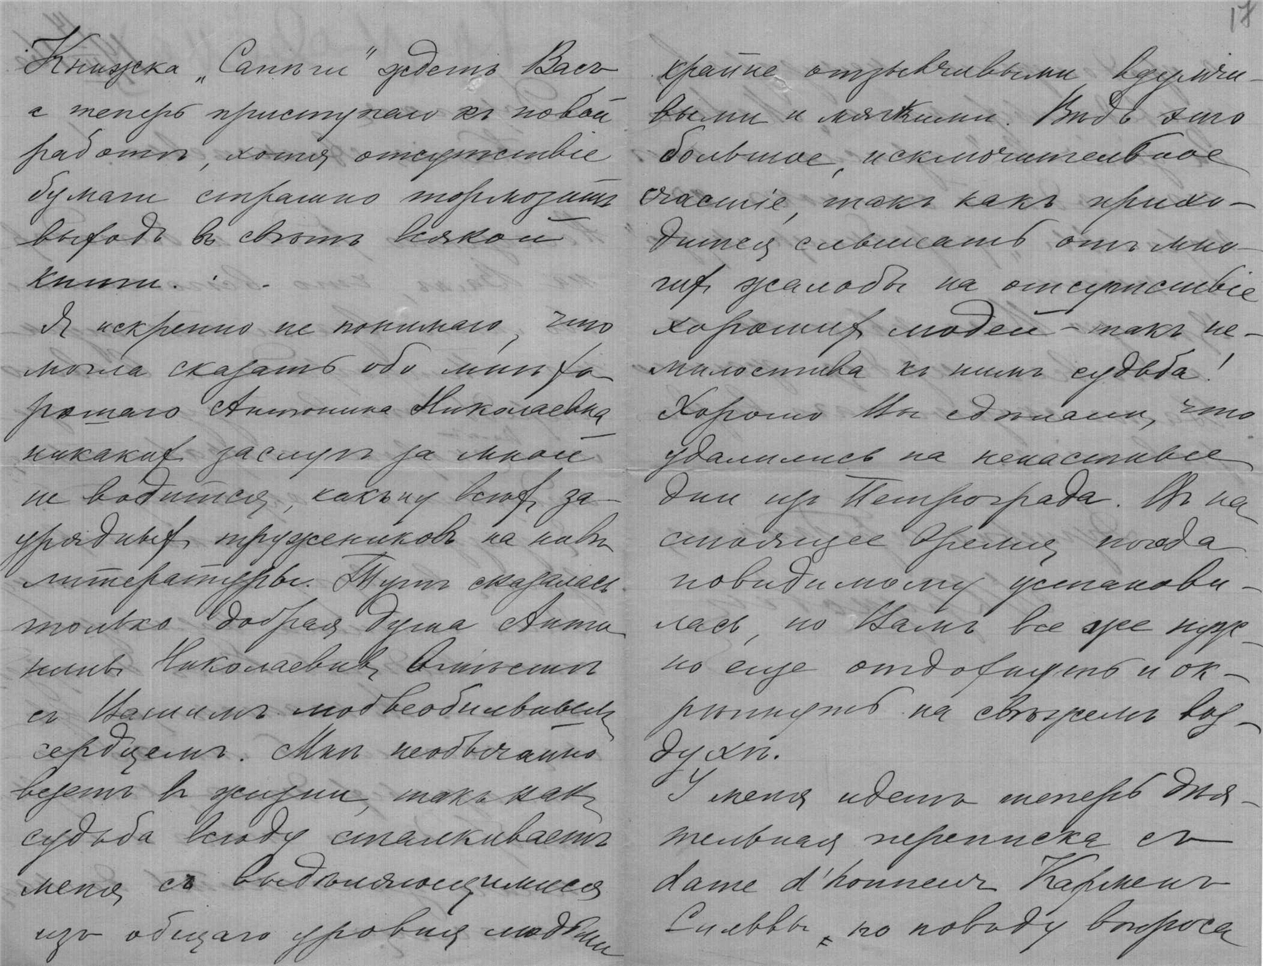 17
Книжка „Сапѣги" ждетъ Васъ
а теперь приступаю къ новой
работѣ, хотя отсутствіе
бумаги страшно тормозитъ
выходъ въ свѣтъ всякой
книги...
Я искренно не понимаю, что
могла сказать обо мнѣ хо-
рошаго Антонина Николаевна,
никакихъ заслугъ за мной
не водится, какъ у всѣхъ за-
урядныхъ тружениковъ на нивѣ
литературы. Тутъ сказалась
только добрая душа Анто-
нины Николаевны вмѣстѣ
съ Вашимъ любвеобильнымъ
сердцемъ. Мнѣ необычайно
везетъ въ жизни, такъ какъ
судьба всюду сталкиваетъ
меня съ выдѣляющимися
изъ общаго уровня людьми
крайне отзывчивыми вдумчи-
выми и мягкими. Вѣдь это
большое, исключительное
счастіе, такъ какъ прихо-
дится слышать отъ мно-
гихъ жалобы на отсутствіе
хорошихъ людей – такъ не-
милостива къ нимъ судьба!
Хорошо Вы сдѣлали, что
удалились на ненастные
дни изъ Петрограда. Въ на-
стоящее время погода
повидимому установи-
лась, но Вамъ все же нуж-
но еще отдохнуть и ок-
рѣпнуть на свѣжемъ воз-
духѣ.
У меня идетъ теперь дѣя-
тельная переписка съ
dame d'honneur Карменъ
Сильвы по поводу вопроса